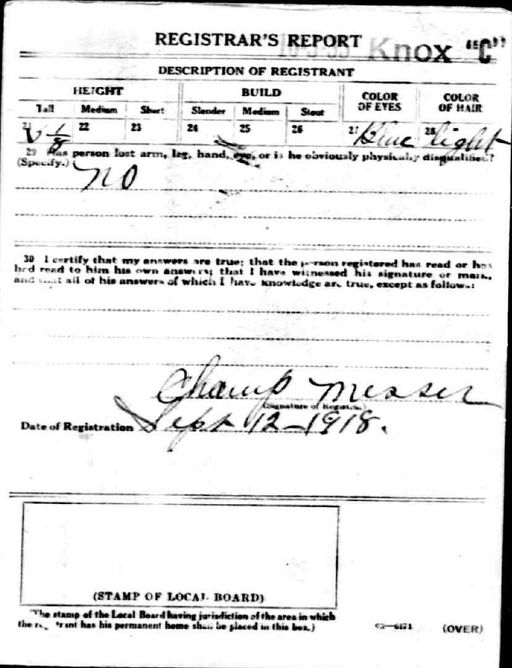 REGISTRAR'S REPORT
Knox "C"
DESCRIPTION OF REGISTRANT
HEIGHT BUILD COLOR OF EYES COLOR OF HAIR
Tall Medium Short Slender Medium Stout
21 22 23 24 25 26 27 Blue 28 light
29 Has person lost arm, leg, hand, eye, or is he obviously physically disqualified?
(Specify.)
No
30 I certify that my answers are true; that the person registered has read or has
had read to him his own answers; that I have witnessed his signature or mark,
and that all of his answers of which I have knowledge are true, except as follows:
Champ Messer
(Signature of Registrar)
Date of Registration Sept 12-1918.
(STAMP OF LOCAL BOARD)
(The stamp of the Local Board having jurisdiction of the area in which
the registrant has his permanent home shall be placed in this box.)
03-6171 (OVER)